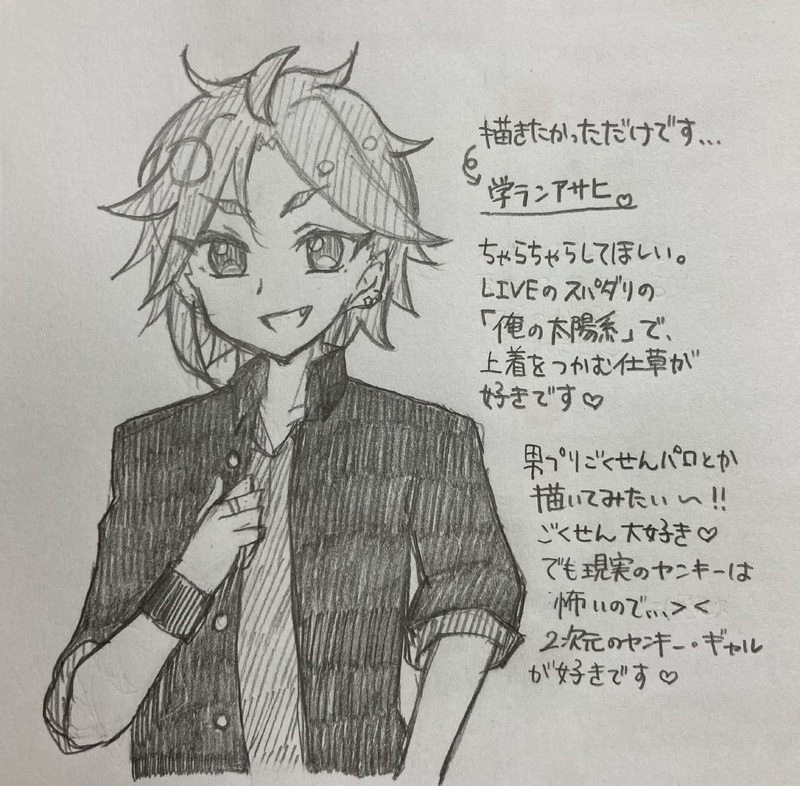 描きたかっただけです...
学ランアサヒ♡
ちゃらちゃらしてほしい。
LIVEのスパダリの
「俺の太陽系」で、
上着をつかむ仕草が
好きです♡
男プリごくせんパロとか
描いてみたい〜!!
ごくせん大好き♡
でも現実のヤンキーは
怖いので...><
2次元のヤンキー・ギャル
が好きです♡